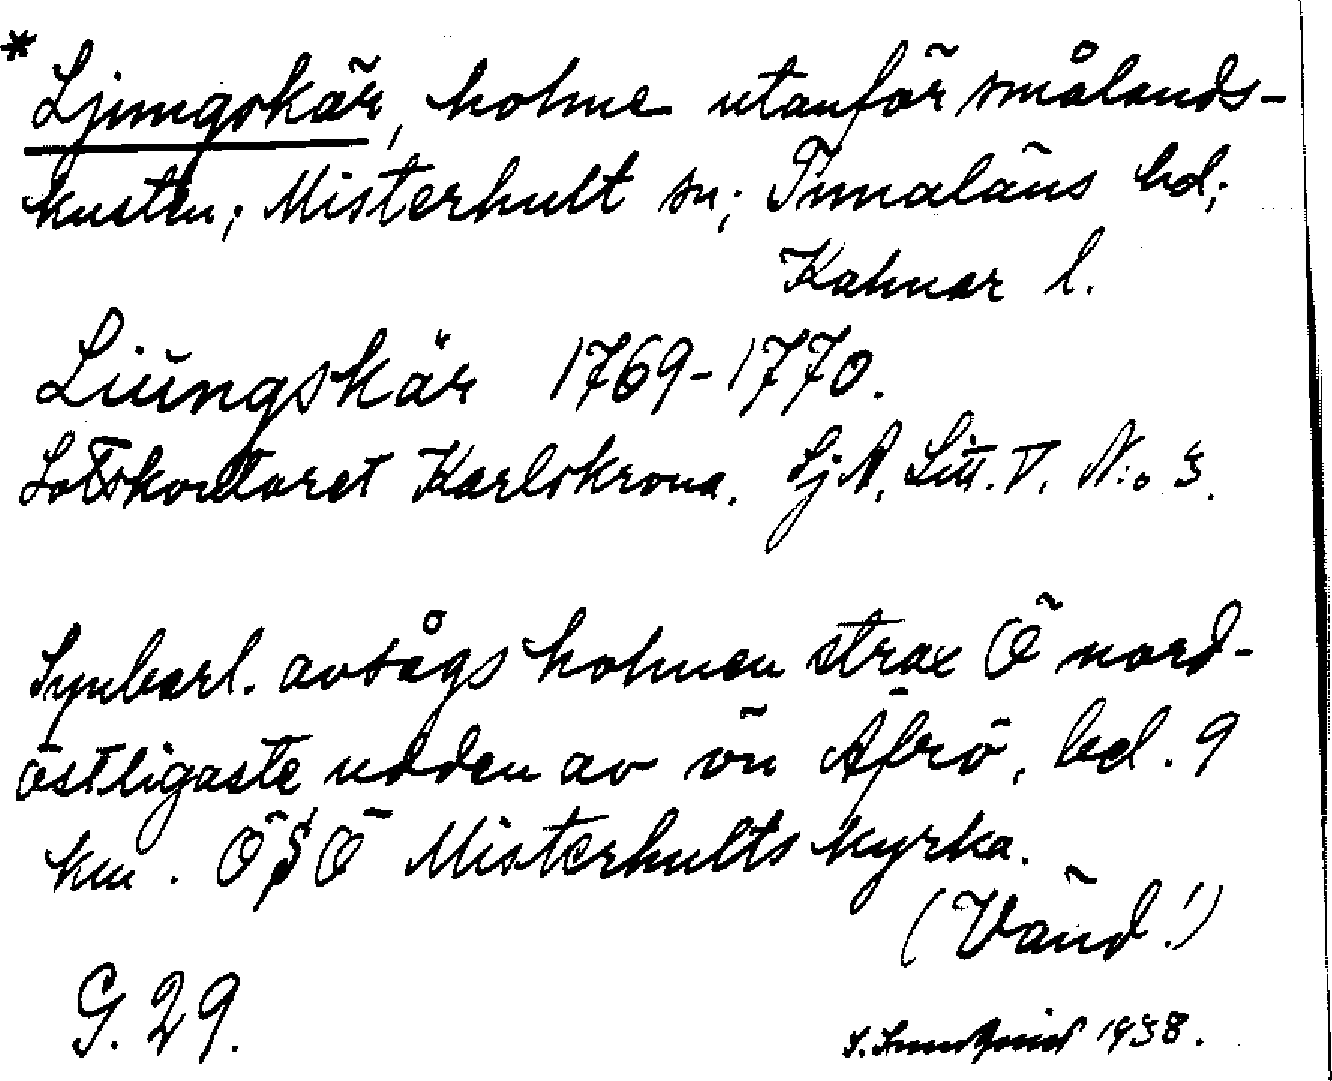 * Ljungskär, holme utanför smålands-
kusten; Misterhult sn; Tunaläns hd;
Kalmar l.
Liŭngskär 1769-1770.
Lotskontoret Karlskrona. SjA. Litt. V. N:o 3.
Synbarl. avsågs holmen strax Ö nord-
östligaste udden av ön Äfrö, bel. 9
km. ÖSÖ Misterhults kyrka.
(Vänd!)
G. 29.
1938.